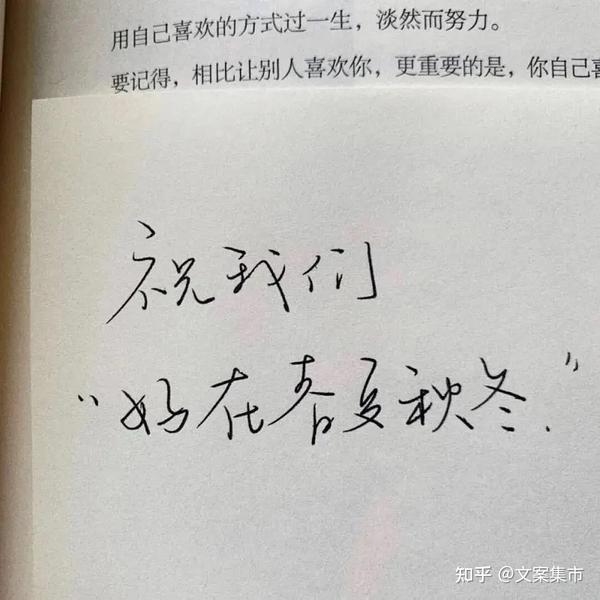 用自己喜欢的方式过一生，淡然而努力。
要记得，相比让别人喜欢你，更重要的是，你自己喜
祝我们
“好在春夏秋冬.”
知乎 @文案集市